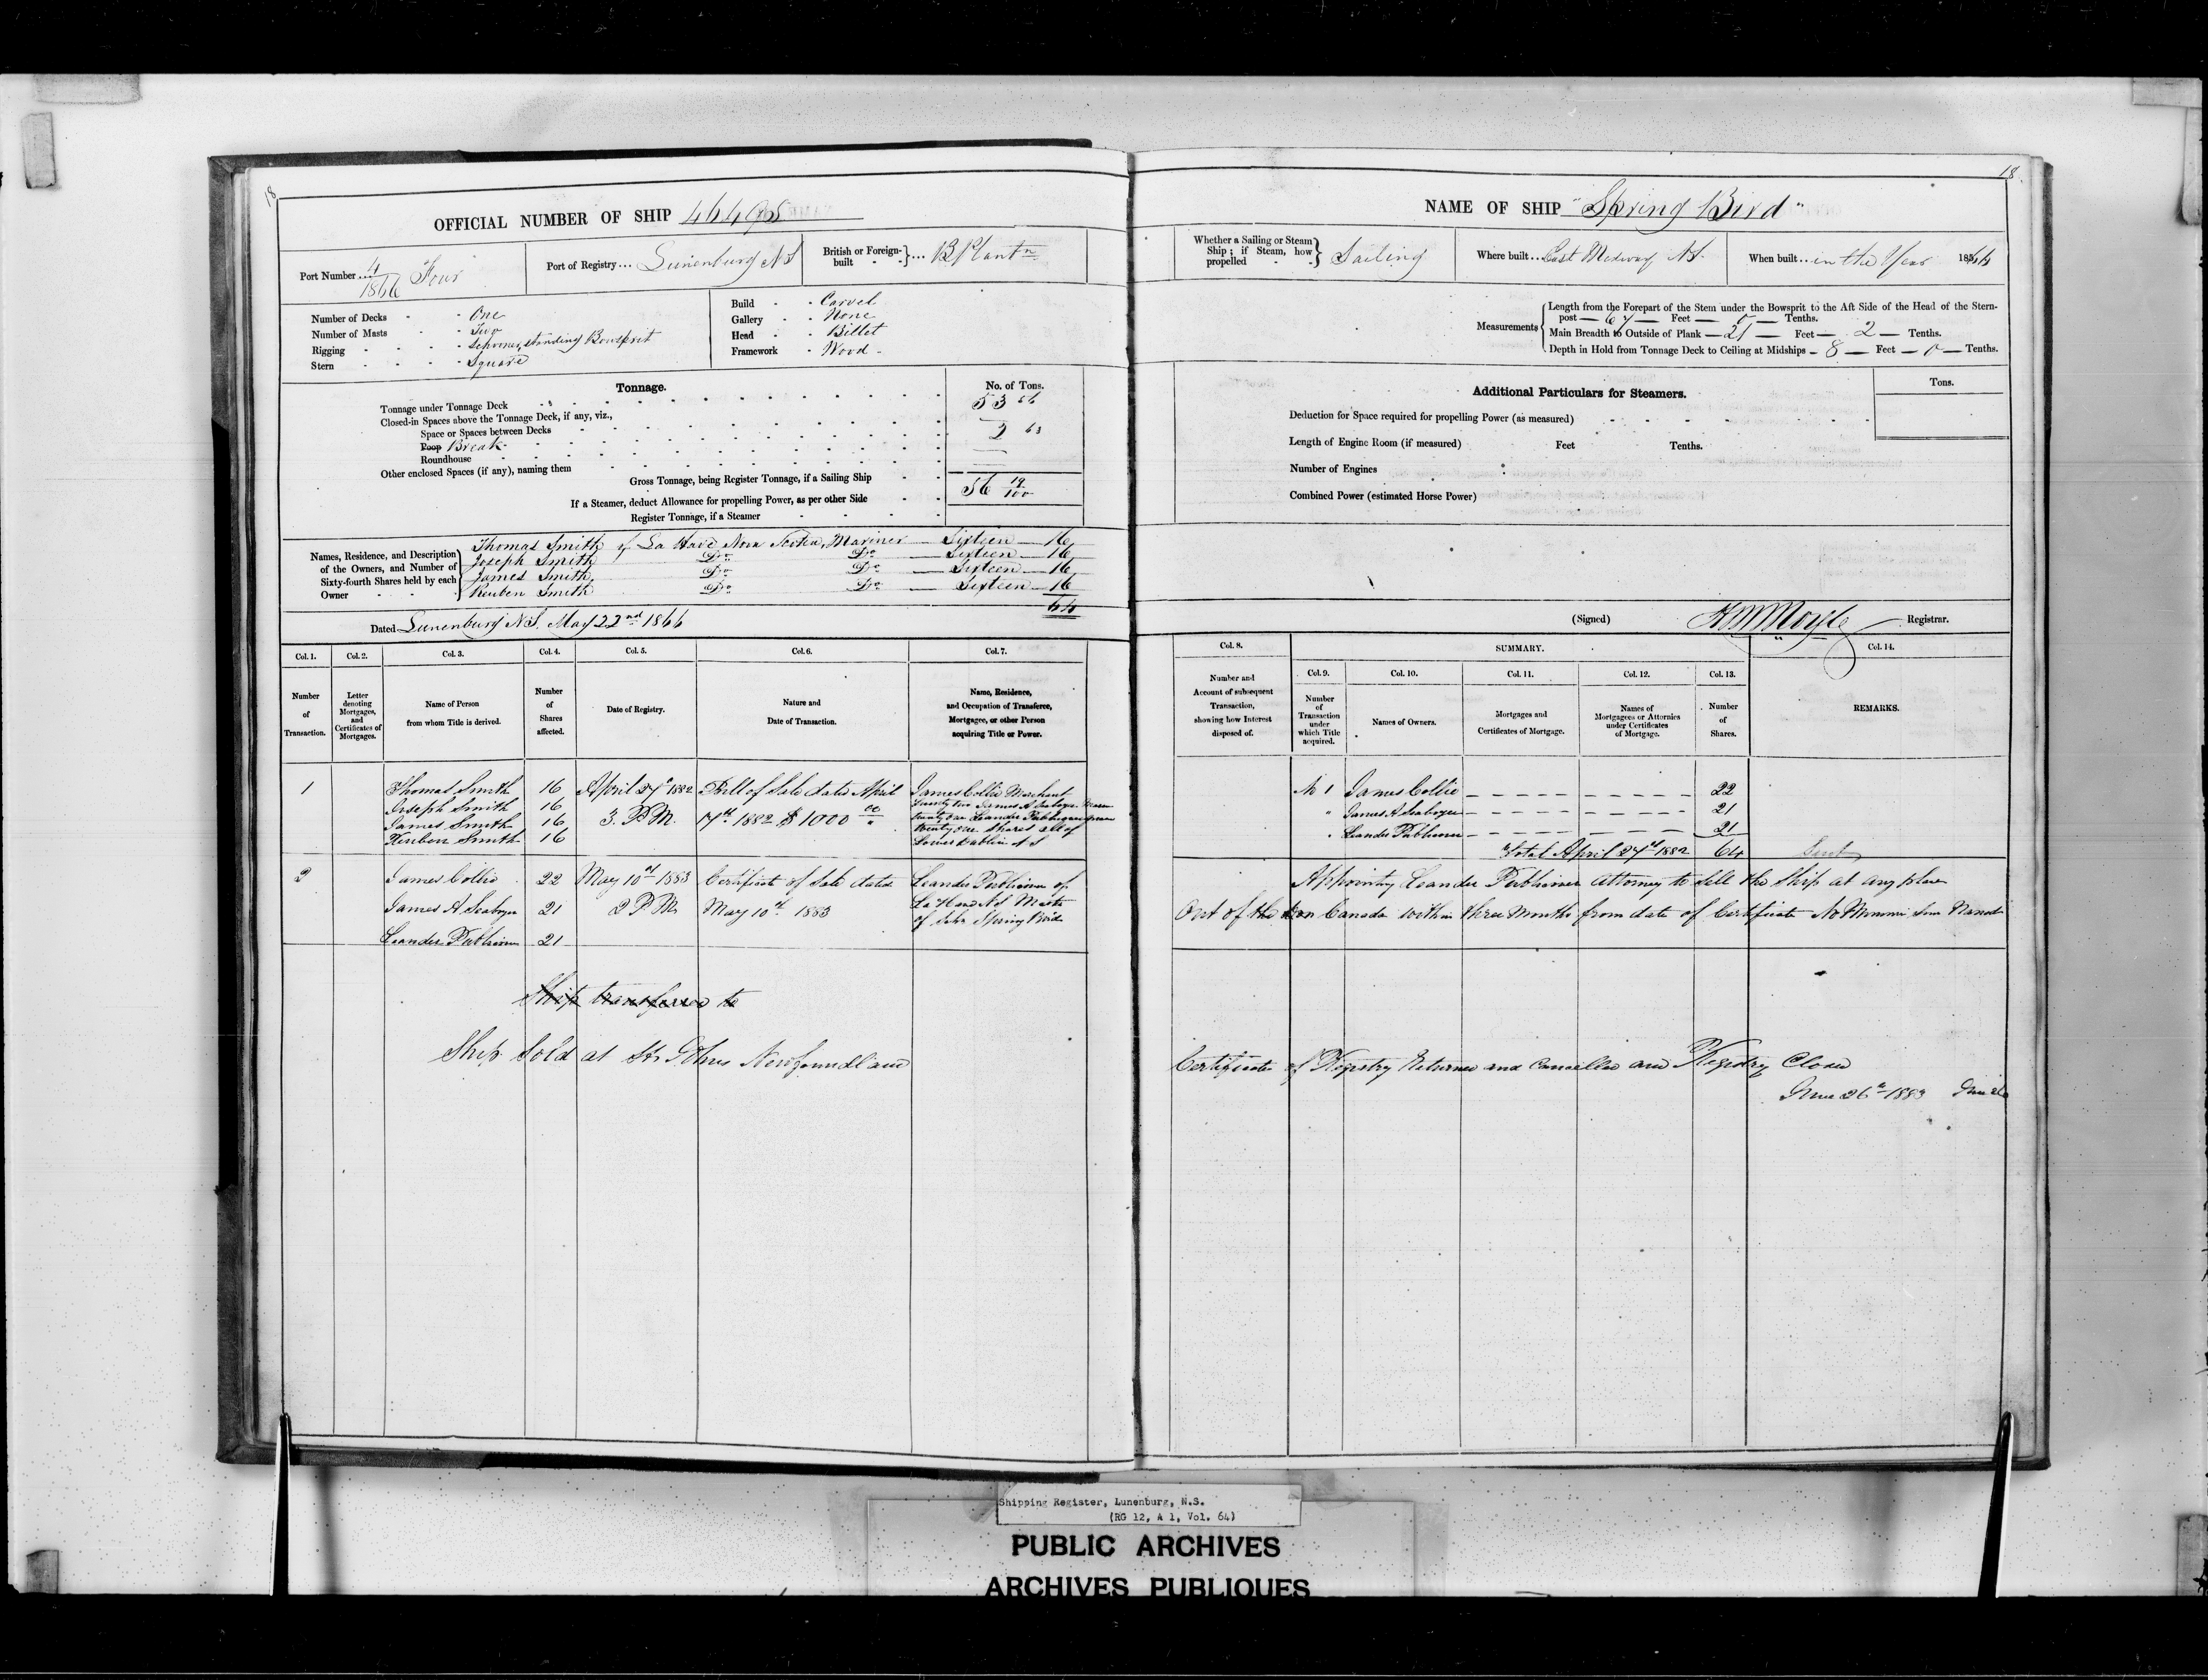 18
OFFICIAL NUMBER OF SHIP 46495
Port Number 4/1866 Four
Port of Registry ... Lunenburg NS
British or Foreign-built ... B Plantn
Number of Decks - One
Number of Masts - Two
Rigging - Schooner, standing Bowsprit
Stern - Square
Build - Carvel
Gallery - None
Head - Billet
Framework - Wood
Tonnage.
No. of Tons.
Tonnage under Tonnage Deck 53 56
Closed-in Spaces above the Tonnage Deck, if any, viz.,
Space or Spaces between Decks
Poop Break 2 63
Roundhouse
Other enclosed Spaces (if any), naming them
Gross Tonnage, being Register Tonnage, if a Sailing Ship 56 19/100
If a Steamer, deduct Allowance for propelling Power, as per other Side
Register Tonnage, if a Steamer
Names, Residence, and Description of the Owners, and Number of Sixty-fourth Shares held by each Owner
Thomas Smith of La Have Nova Scotia, Mariner — Sixteen — 16
Joseph Smith Do Do — Sixteen — 16
James Smith Do Do — Sixteen — 16
Reuben Smith Do Do — Sixteen — 16
64
Dated Lunenburg N.S. May 22nd 1866
Col. 1. Col. 2. Col. 3. Col. 4. Col. 5. Col. 6. Col. 7.
Number of Transaction.
Letter denoting Mortgages, and Certificates of Mortgages.
Name of Person from whom Title is derived.
Number of Shares affected.
Date of Registry.
Nature and Date of Transaction.
Name, Residence, and Occupation of Transferee, Mortgagee, or other Person acquiring Title or Power.
1 Thomas Smith 16 April 27th 1882 Bill of Sale dated April James Collie Merchant
Joseph Smith 16 3. P.M. 17th 1882 $1000 00 Twenty two James A Seaboyer
James Smith 16 twenty one Leander Publicover
Reuben Smith 16 twenty one Shares all of
Lower Dublin N S
2 James Collie 22 May 10th 1883 Certificate of Sale dated Leander Publicover of
James A. Seaboyer 21 2 P.M. May 10th 1883 La Have N.S. Master
Leander Publicover 21 of Schr Spring Bird
Ship transferred to
Ship Sold at St Johns Newfoundland
18.
NAME OF SHIP "Spring Bird"
Whether a Sailing or Steam Ship; if Steam, how propelled Sailing
Where built ... East Medway NS.
When built ... in the Year 1864
Measurements
Length from the Forepart of the Stem under the Bowsprit to the Aft Side of the Head of the Stern-
post — 67 — Feet — 5 — Tenths.
Main Breadth to Outside of Plank — 21 Feet — 2 — Tenths.
Depth in Hold from Tonnage Deck to Ceiling at Midships — 8 — Feet — 0 — Tenths.
Additional Particulars for Steamers.
Tons.
Deduction for Space required for propelling Power (as measured)
Length of Engine Room (if measured) Feet Tenths.
Number of Engines
Combined Power (estimated Horse Power)
(Signed) Registrar.
Col. 8. SUMMARY. Col. 14.
Col. 9. Col. 10. Col. 11. Col. 12. Col. 13.
Number and Account of subsequent Transaction, showing how Interest disposed of.
Number of Transaction under which Title acquired.
Names of Owners.
Mortgages and Certificates of Mortgage.
Names of Mortgagees or Attornies under Certificates of Mortgage.
Number of Shares.
REMARKS.
No 1 James Collie 22
" James A Seaboyer 21
" Leander Publicover 21
Total April 27th 1882 64
Appointing Leander Publicover Attorney to sell the Ship at any place
Out of the Canada within three months from date of Certificate No Minimum Sum Named
Certificate of Registry Returned and Cancelled and Registry Closed
June 26th 1883
Shipping Register, Lunenburg, N.S.
(RG 12, A 1, Vol. 64)
PUBLIC ARCHIVES
ARCHIVES PUBLIQUES